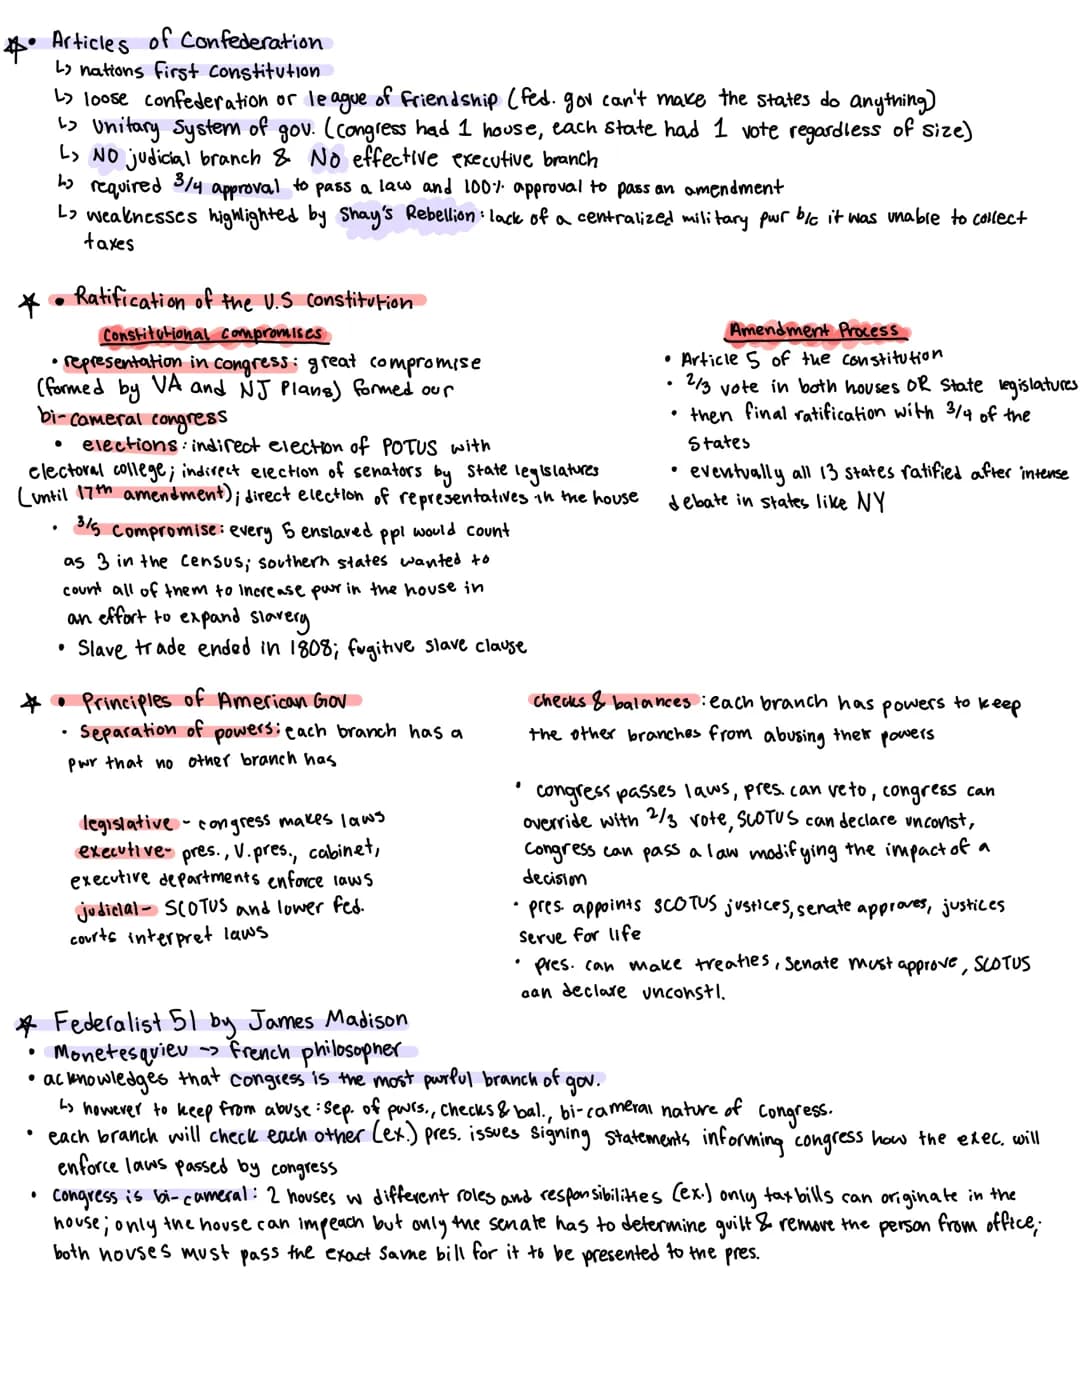 • Articles of Confederation
↳ nations first constitution
↳ loose confederation or league of friendship (fed. gov can't make the states do anything)
↳ Unitary System of gov. (congress had 1 house, each state had 1 vote regardless of size)
↳ NO judicial branch & NO effective executive branch
↳ required 3/4 approval to pass a law and 100% approval to pass an amendment
↳ weaknesses highlighted by Shay's Rebellion: lack of a centralized military pwr b/c it was unable to collect
taxes
• Ratification of the U.S constitution
Constitutional compromises
• representation in congress: great compromise
(formed by VA and NJ Plans) formed our
bi-cameral congress
• elections: indirect election of POTUS with
electoral college; indirect election of senators by state legislatures
(until 17th amendment); direct election of representatives in the house
• 3/5 compromise: every 5 enslaved ppl would count
as 3 in the census; southern states wanted to
count all of them to increase pwr in the house in
an effort to expand slavery
• Slave trade ended in 1808; fugitive slave clause
Amendment Process
• Article 5 of the constitution
• 2/3 vote in both houses OR State legislatures
• then final ratification with 3/4 of the
States
• eventually all 13 states ratified after intense
debate in states like NY
• Principles of American Gov
• Separation of powers: each branch has a
pwr that no other branch has
legislative - congress makes laws
executive- pres., V.pres., cabinet,
executive departments enforce laws
judicial- SCOTUS and lower fed.
courts interpret laws
checks & balances: each branch has powers to keep
the other branches from abusing their powers
• congress passes laws, pres. can veto, congress can
override with 2/3 vote, SCOTUS can declare unconst,
Congress can pass a law modifying the impact of a
decision
• pres. appoints SCOTUS justices, senate approves, justices
serve for life
• pres. can make treaties, Senate must approve, SCOTUS
can declare unconstl.
Federalist 51 by James Madison
• Monetesquieu -> french philosopher
• acknowledges that congress is the most pwrful branch of gov.
↳ however to keep from abuse: Sep. of pwrs., checks & bal., bi-cameral nature of Congress.
• each branch will check each other (ex.) pres. issues signing statements informing congress how the exec. will
enforce laws passed by congress
• congress is bi-cameral: 2 houses w different roles and responsibilities (ex.) only tax bills can originate in the
house; only the house can impeach but only the senate has to determine guilt & remove the person from office;
both houses must pass the exact same bill for it to be presented to the pres.